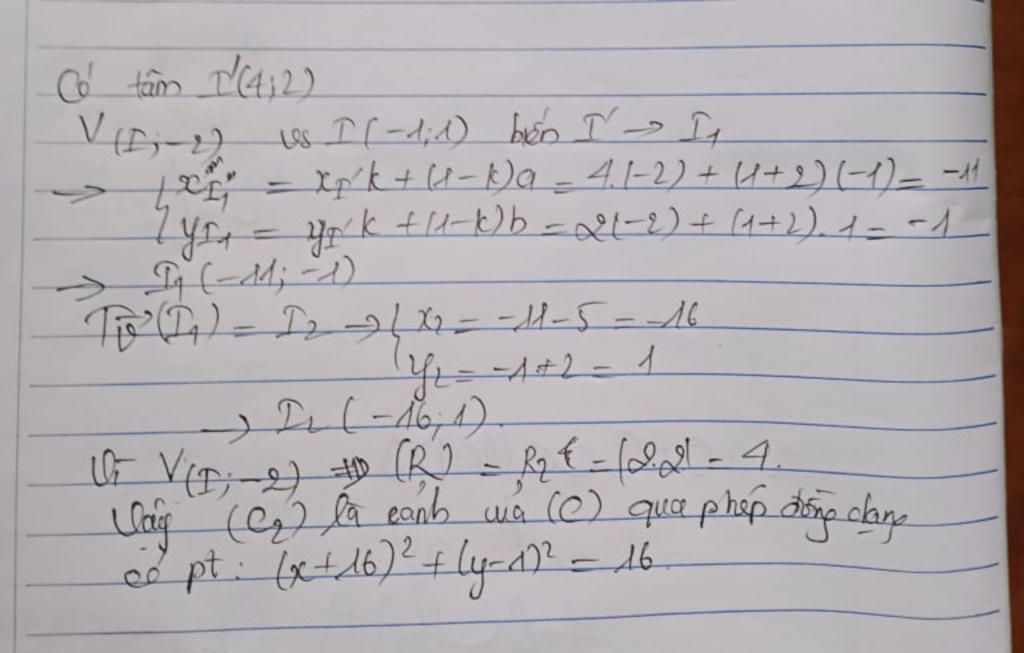 Có tâm I'(4;2)
V(I;-2) vs I(-1;1) biến I' → I₁
→ { x_I₁ = x_I' k + (1-k)a = 4.(-2) + (1+2)(-1) = -11
{ y_I₁ = y_I' k + (1-k)b = 2(-2) + (1+2).1 = -1
→ I₁(-11;-1)
T_v⃗(I₁) = I₂ → { x₂ = -11-5 = -16
{ y₂ = -1+2 = 1
→ I₂(-16;1).
V(I;-2) ⇒ (R₁) = R₂ = |2.2| = 4.
Vậy (C₂) là ảnh của (C) qua phép đồng dạng
có pt: (x+16)² + (y-1)² = 16.